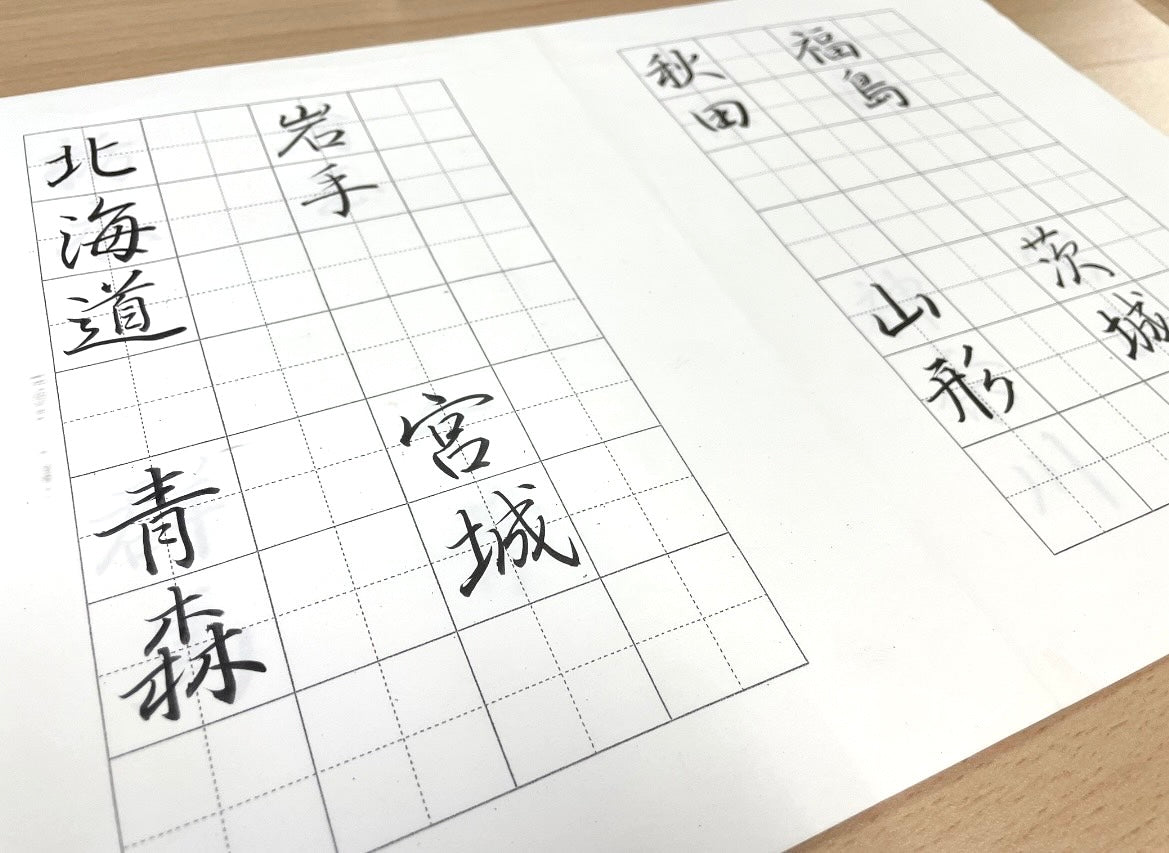 北海道
青森
岩手
宮城
秋田
山形
福島
茨城